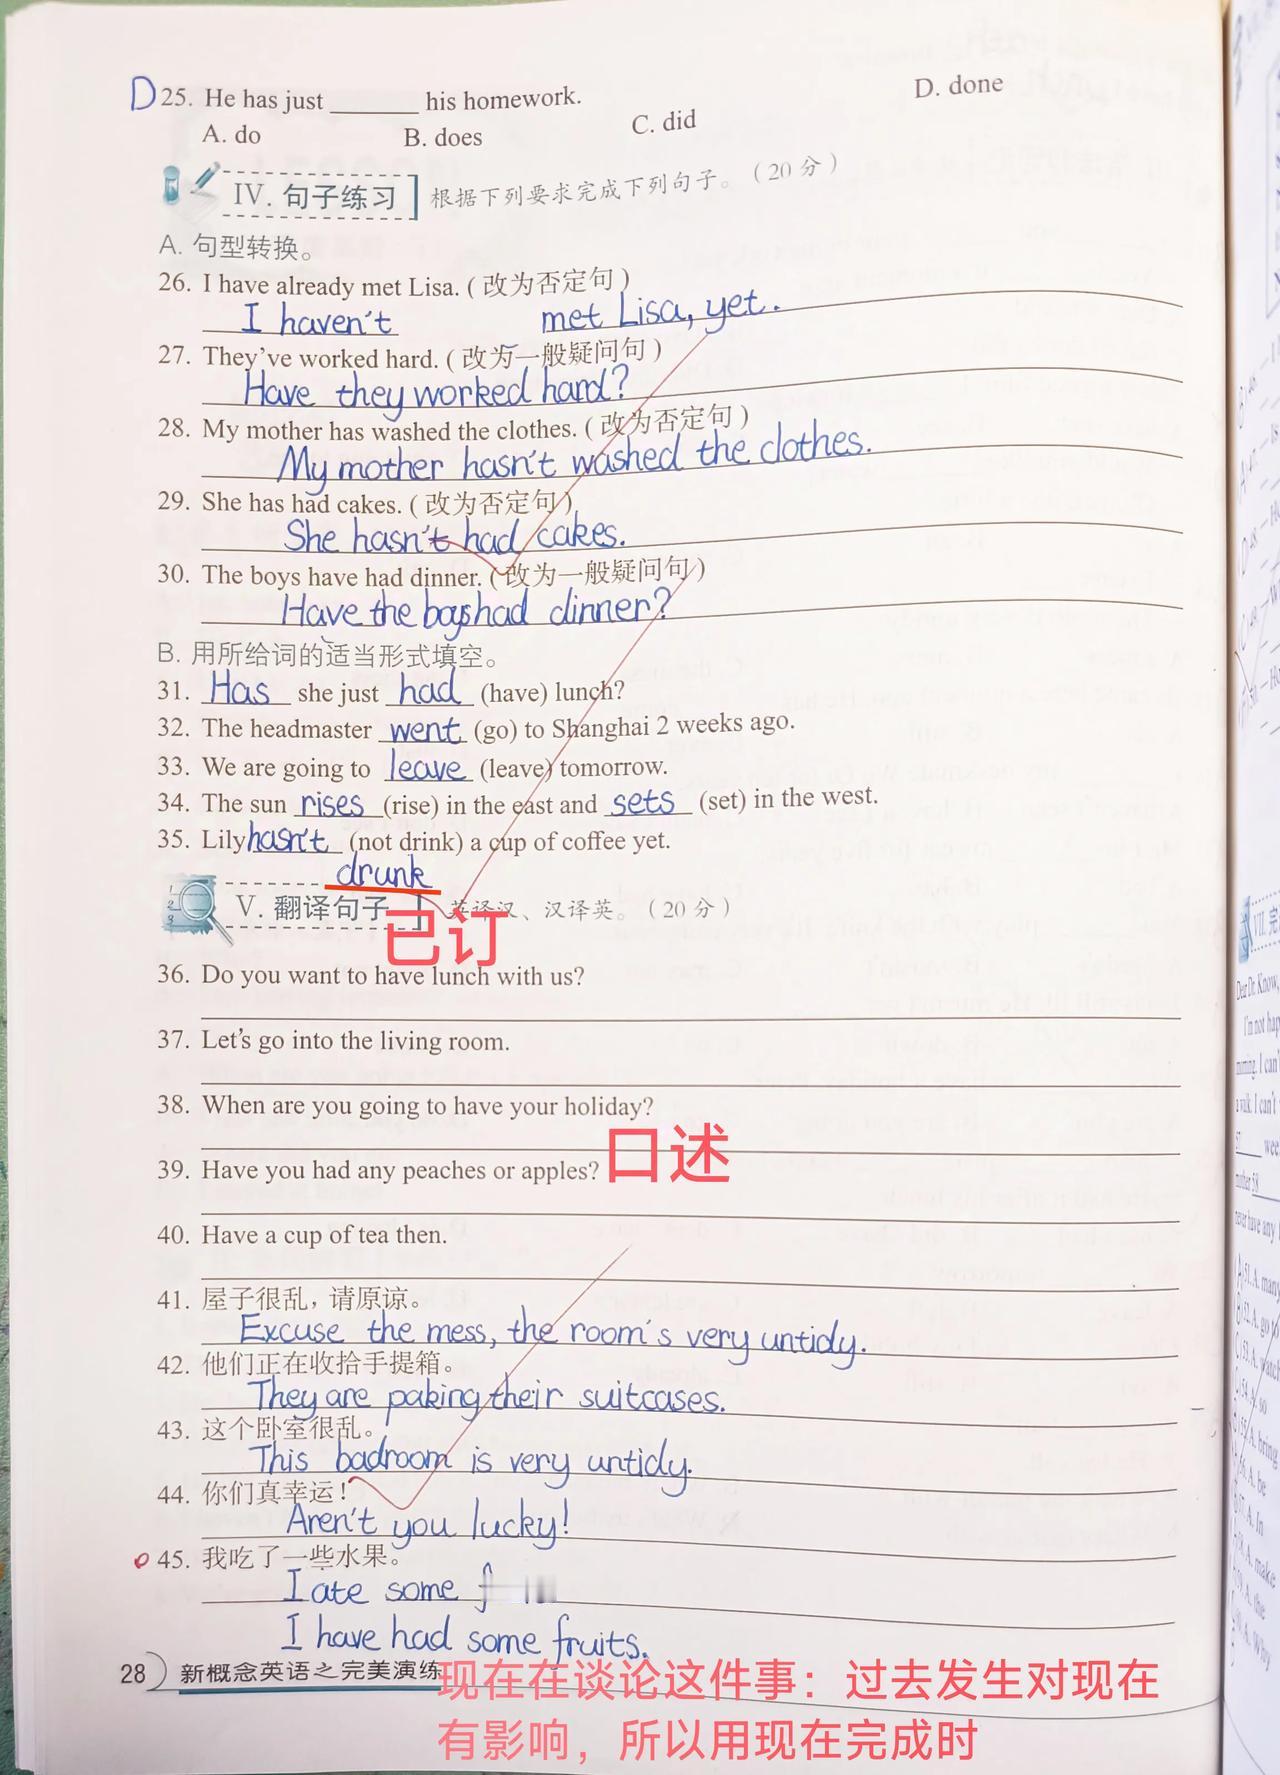 D 25. He has just ______ his homework.
A. do B. does C. did D. done
IV. 句子练习 根据下列要求完成下列句子。（20分）
A. 句型转换。
26. I have already met Lisa. (改为否定句)
I haven't met Lisa, yet.
27. They've worked hard. (改为一般疑问句)
Have they worked hard?
28. My mother has washed the clothes. (改为否定句)
My mother hasn't washed the clothes.
29. She has had cakes. (改为否定句)
She hasn't had cakes.
30. The boys have had dinner. (改为一般疑问句)
Have the boys had dinner?
B. 用所给词的适当形式填空。
31. Has she just had (have) lunch?
32. The headmaster went (go) to Shanghai 2 weeks ago.
33. We are going to leave (leave) tomorrow.
34. The sun rises (rise) in the east and sets (set) in the west.
35. Lily hasn't (not drink) a cup of coffee yet.
drunk
V. 翻译句子 英译汉、汉译英。（20分）
已订
36. Do you want to have lunch with us?
37. Let's go into the living room.
38. When are you going to have your holiday?
39. Have you had any peaches or apples?
口述
40. Have a cup of tea then.
41. 屋子很乱，请原谅。
Excuse the mess, the room's very untidy.
42. 他们正在收拾手提箱。
They are paking their suitcases.
43. 这个卧室很乱。
This badroom is very untidy.
44. 你们真幸运！
Aren't you lucky!
45. 我吃了一些水果。
I ate some
I have had some fruits.
28 新概念英语之完美演练
现在在谈论这件事：过去发生对现在
有影响，所以用现在完成时